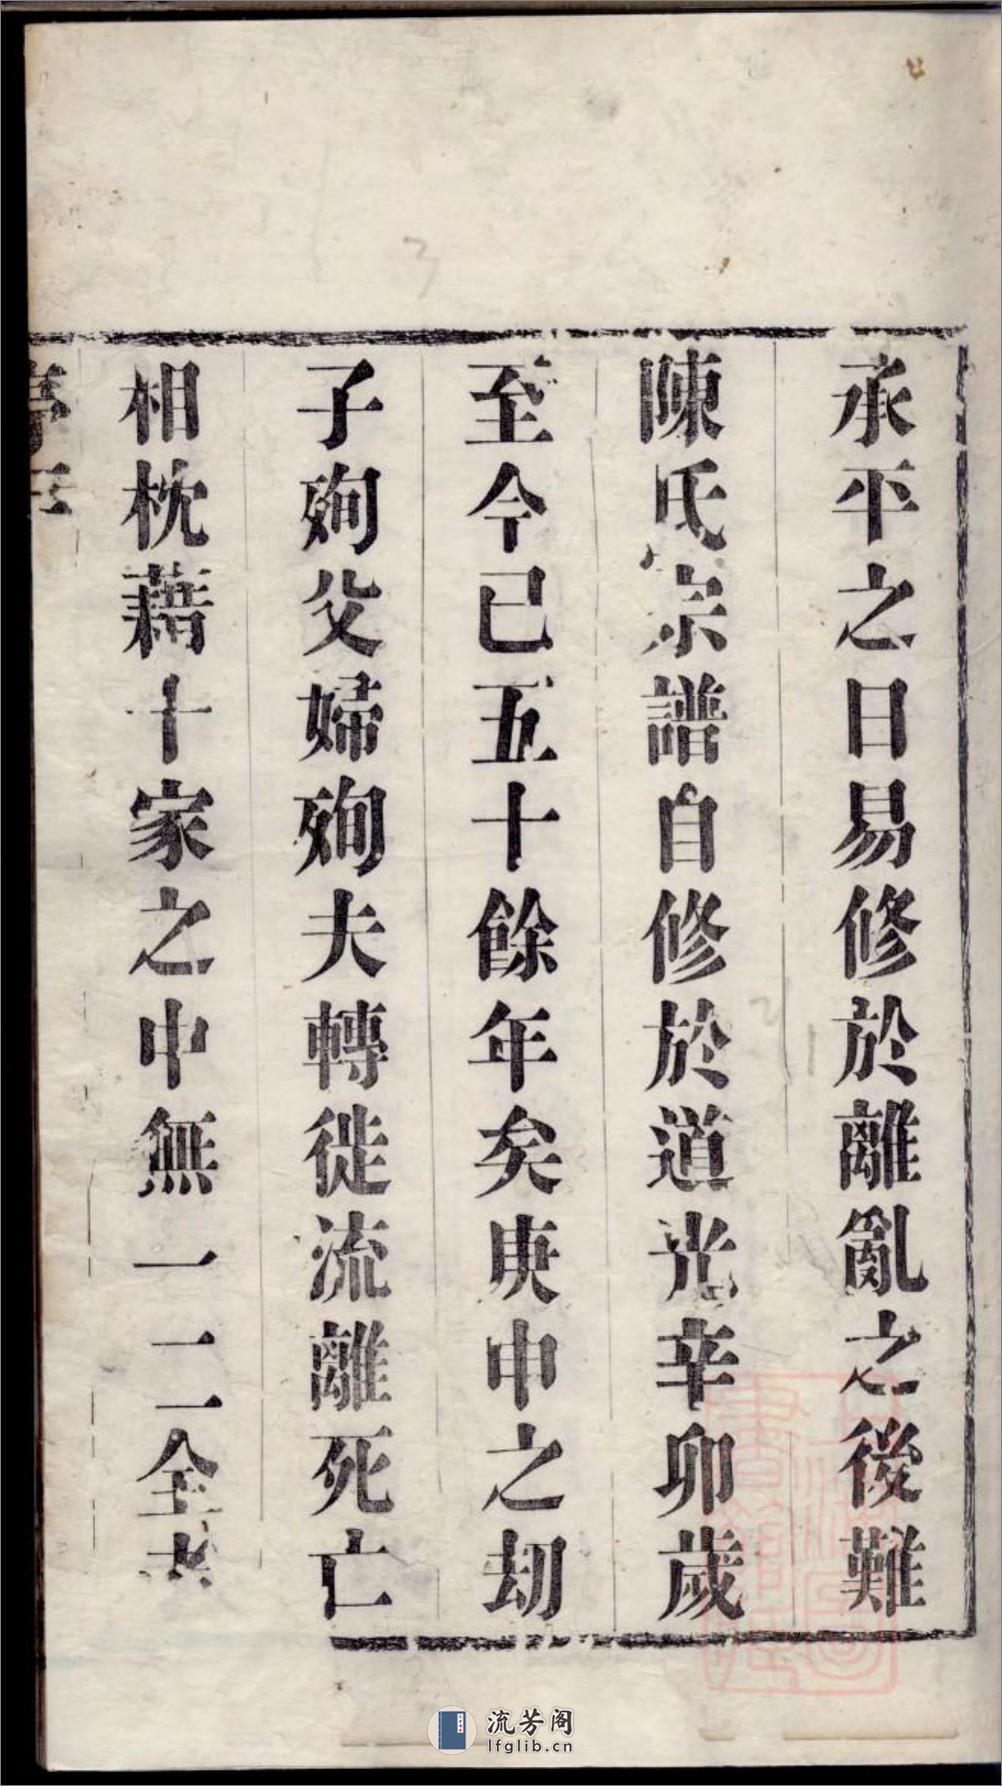 承平之日易修於離亂之後難
陳氏宗譜自修於道光辛卯歲
至今已五十餘年矣庚申之劫
子殉父婦殉夫轉徙流離死亡
相枕藉十家之中無一二全者
流芳阁
lfglib.cn